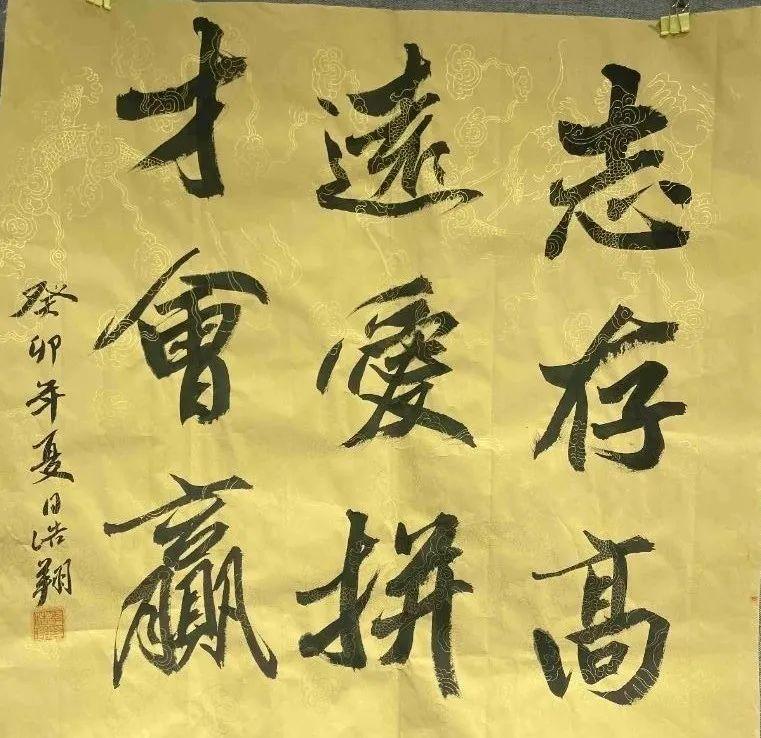 志存高
遠愛拼
才會贏
癸卯年夏日浩翔